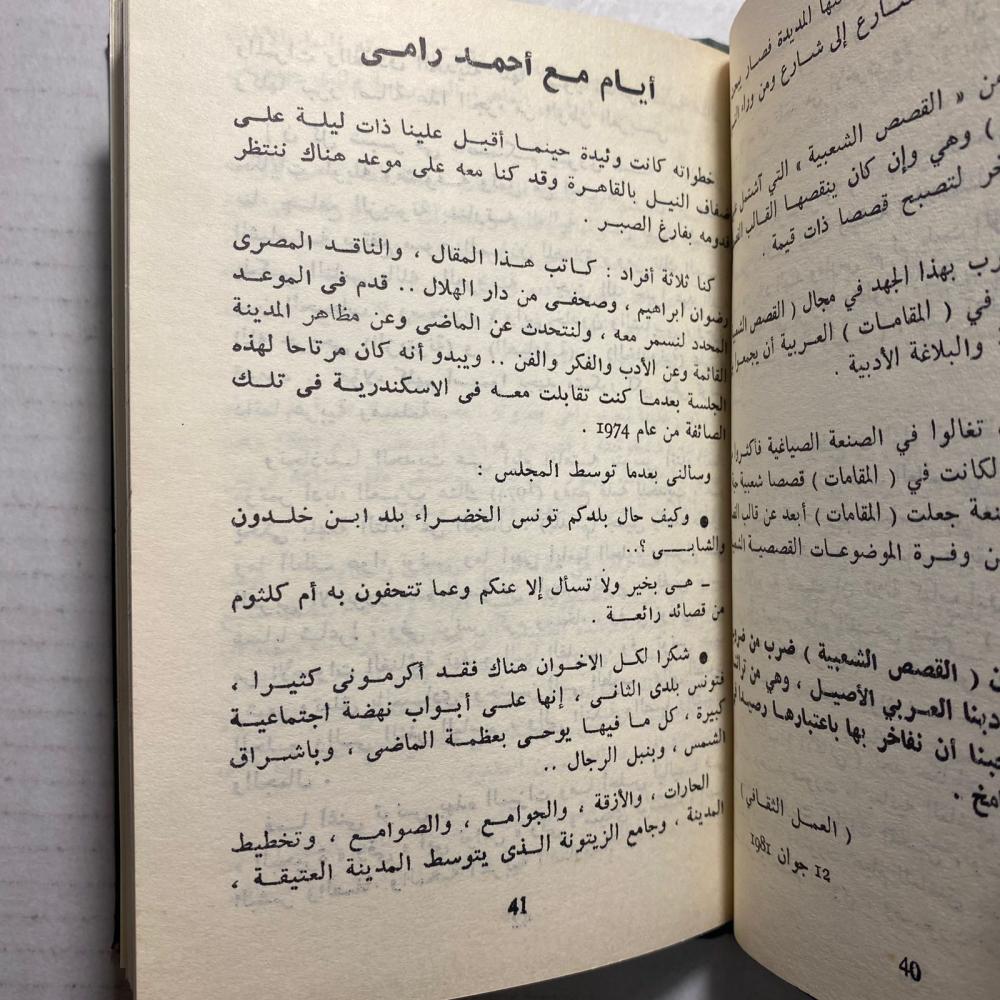 ـها المديدة فصار
ـارع إلى شارع ومن وراء
ـن « القصص الشعبية » التي
) وهي وإن كان ينقصها القالب
ـخر لتصبح قصصا ذات قيمة .
ـرب بهذا الجهد في مجال ( القصص
في ( المقامات ) العربية أن
والبلاغة الأدبية .
تغالوا في الصنعة الصياغية
لكانت في ( المقامات ) قصصا شعبية
ـنعة جعلت ( المقامات ) أبعد عن قالب
ـن وفرة الموضوعات القصصية
( القصص الشعبية ) ضرب من
ـدبنا العربي الأصيل ، وهي من
ـجبنا أن نفاخر بها باعتبارها
ـامخ .
( العمل الثقافي )
12 جوان 1981
40
أيام مع أحمد رامى
خطواته كانت وئيدة حينما أقبل علينا ذات ليلة على
ضفاف النيل بالقاهرة وقد كنا معه على موعد هناك ننتظر
قدومه بفارغ الصبر .
كنا ثلاثة أفراد : كاتب هذا المقال ، والناقد المصرى
رضوان ابراهيم ، وصحفى من دار الهلال .. قدم فى الموعد
المحدد لنسمر معه ، ولنتحدث عن الماضى وعن مظاهر المدينة
القائمة وعن الأدب والفكر والفن .. ويبدو أنه كان مرتاحا لهذه
الجلسة بعدما كنت تقابلت معه فى الاسكندرية فى تلك
الصائفة من عام 1974 .
وسألنى بعدما توسط المجلس :
● وكيف حال بلدكم تونس الخضراء بلد ابن خلدون
والشابى ؟..
ـ هى بخير ولا تسأل إلا عنكم وعما تتحفون به أم كلثوم
من قصائد رائعة .
● شكرا لكل الاخوان هناك فقد أكرمونى كثيرا ،
فتونس بلدى الثانى ، إنها على أبواب نهضة اجتماعية
كبيرة ، كل ما فيها يوحى بعظمة الماضى ، وباشراق
الشمس ، وبنبل الرجال ..
الحارات ، والأزقة ، والجوامع ، والصوامع ، وتخطيط
المدينة ، وجامع الزيتونة الذى يتوسط المدينة العتيقة ،
41